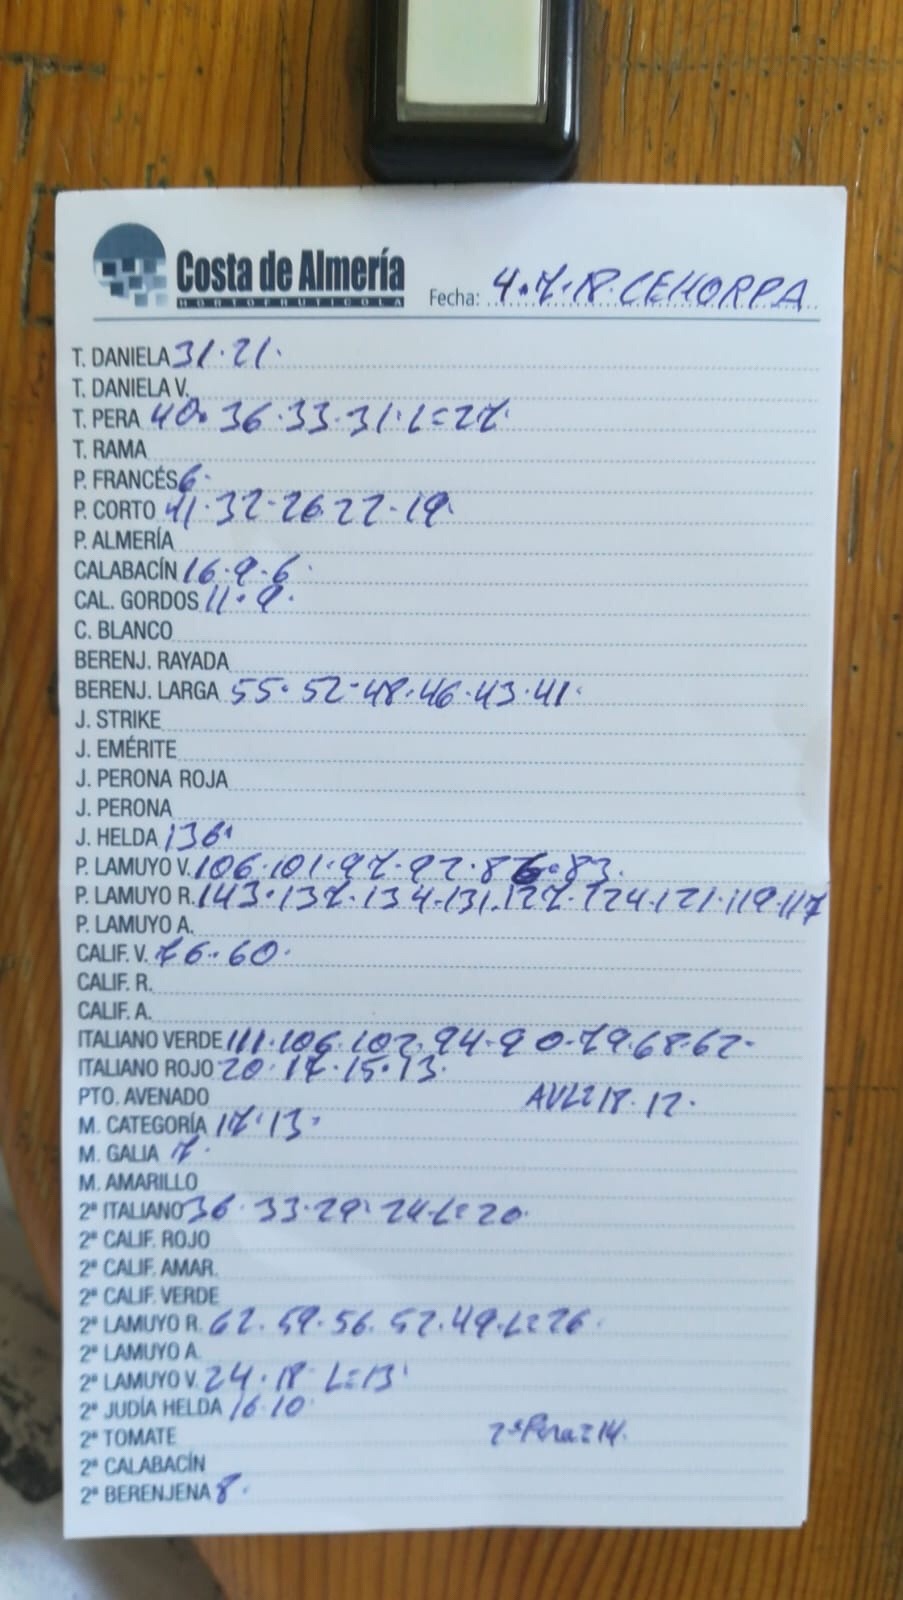 Costa de Almería
HORTOFRUTICOLA
Fecha: 4.7.18. CEHORPA
T. DANIELA 31.21.
T. DANIELA V.
T. PERA 40. 36.33.31.L=27.
T. RAMA
P. FRANCÉS 6.
P. CORTO 41.32-26.22-19.
P. ALMERÍA
CALABACÍN 16.9.6.
CAL. GORDOS 11.9.
C. BLANCO
BERENJ. RAYADA
BERENJ. LARGA 55.52-48.46.43.41.
J. STRIKE
J. EMÉRITE
J. PERONA ROJA
J. PERONA
J. HELDA 136.
P. LAMUYO V. 106.101.97-92-86.83.
P. LAMUYO R. 143.137.134.131.127.124.121.119.117
P. LAMUYO A.
CALIF. V. 76.60.
CALIF. R.
CALIF. A.
ITALIANO VERDE 111.106.102.94-90-79.68.62-
ITALIANO ROJO 20.17.15.13.
PTO. AVENADO AVL=18.12.
M. CATEGORÍA 17.13.
M. GALIA 7.
M. AMARILLO
2ª ITALIANO 36.33.29.24-L=20.
2ª CALIF. ROJO
2ª CALIF. AMAR.
2ª CALIF. VERDE
2ª LAMUYO R. 62.59.56.52.49.L=26.
2ª LAMUYO A.
2ª LAMUYO V. 24.18- L=13.
2ª JUDÍA HELDA 16.10.
2ª TOMATE 2ªPera=14.
2ª CALABACÍN
2ª BERENJENA 8.